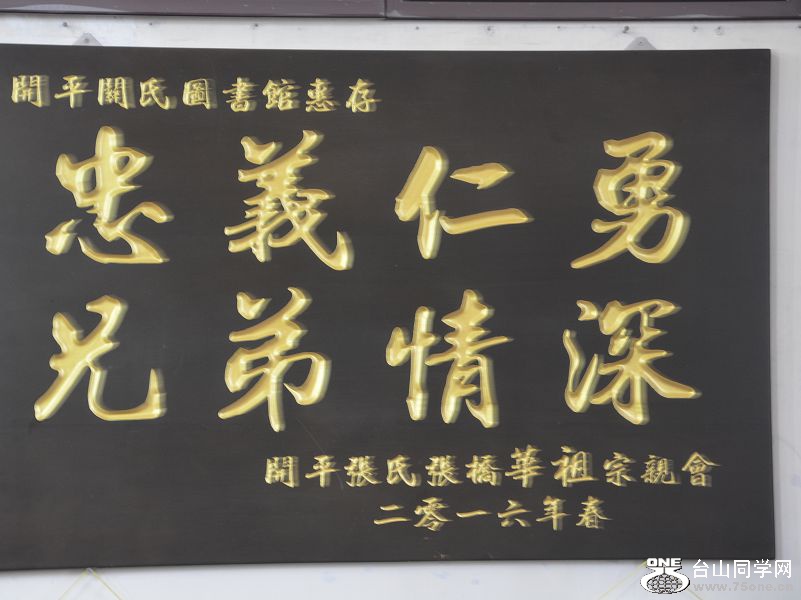 開平關氏圖書館惠存
忠義仁勇
兄弟情深
開平張氏張橋華祖宗親會
二零一六年春
ONE
台山同学网
www.75one.cn